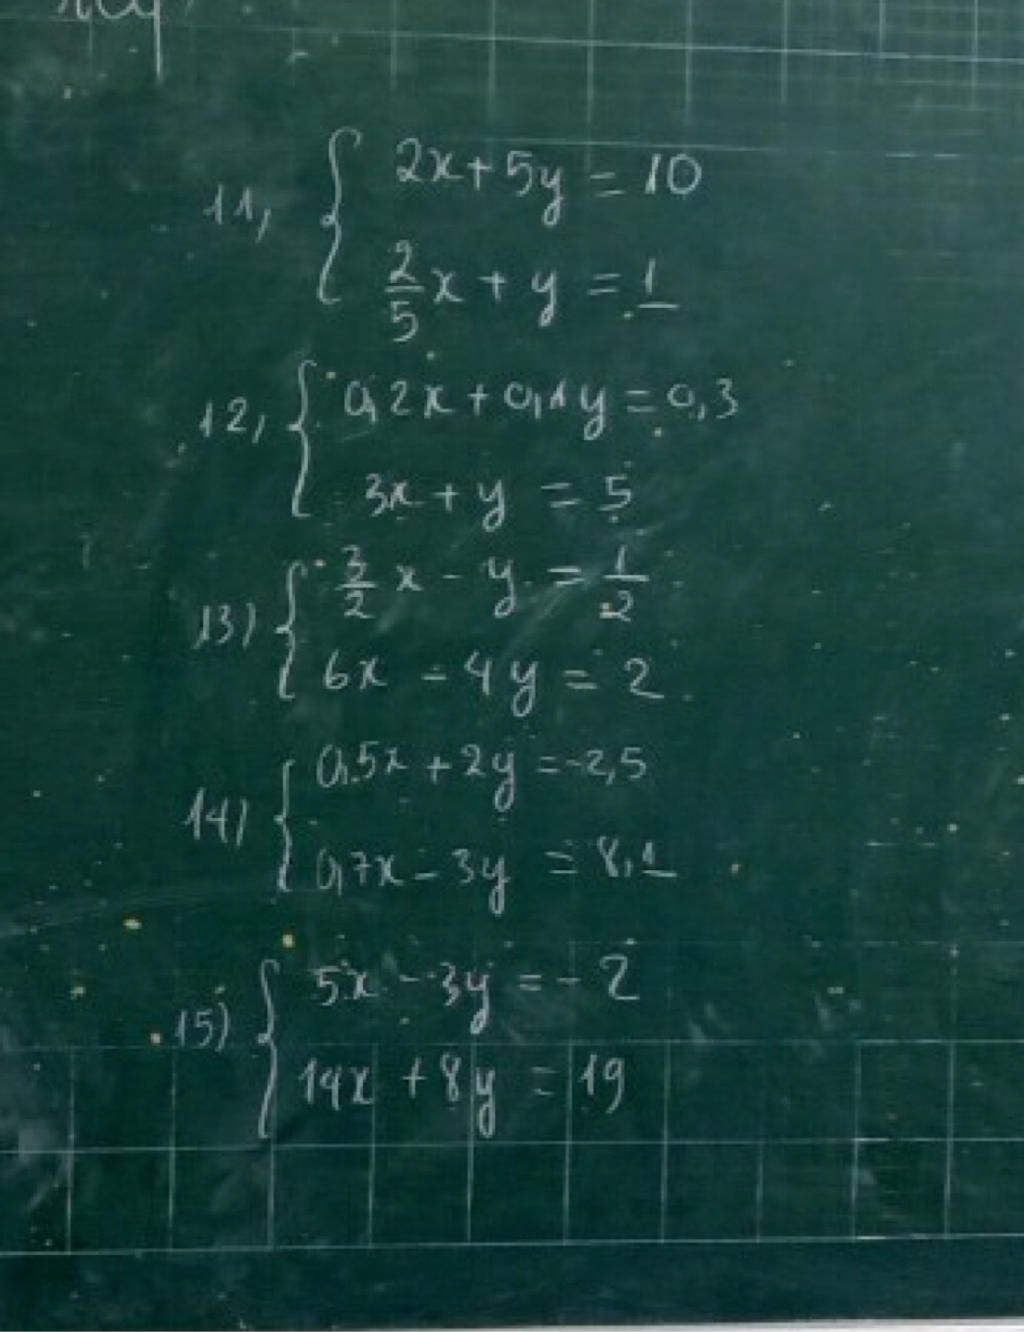 11, { 2x + 5y = 10
2/5 x + y = 1
12, { 0,2x + 0,1y = 0,3
3x + y = 5
13) { 3/2 x - y = 1/2
6x - 4y = 2
14) { 0,5x + 2y = -2,5
0,7x - 3y = 8,1
15) { 5x - 3y = - 2
14x + 8y = 19